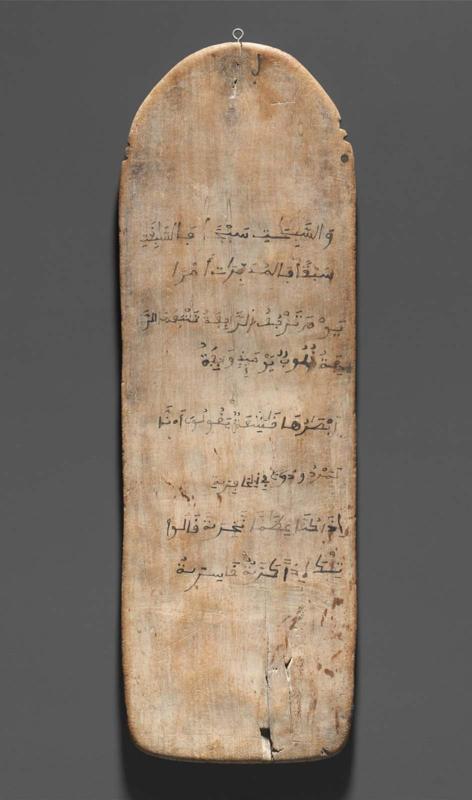 وَالسَّبِحَتِ سَبْحًا فَالسَّبِقَتِ
سَبْقًا فَالمُدَبِّرَاتِ أَمْرًا
يَوْمَ تَرْجُفُ الرَّاجِفَةُ تَتْبَعُهَا الرَّ
دِفَةُ قُلُوبٌ يَوْمَئِذٍ وَاجِفَةٌ
أَبْصَرُهَا خَشِعَةٌ يَقُولُونَ أَءنَّا
لَمَرْدُودُونَ فِي الحَافِرَةِ
أَذَا كُنَّا عِظَمًا نَّخِرَةً قَالُوا
تِلْكَ إِذًا كَرَّةٌ خَاسِرَةٌ